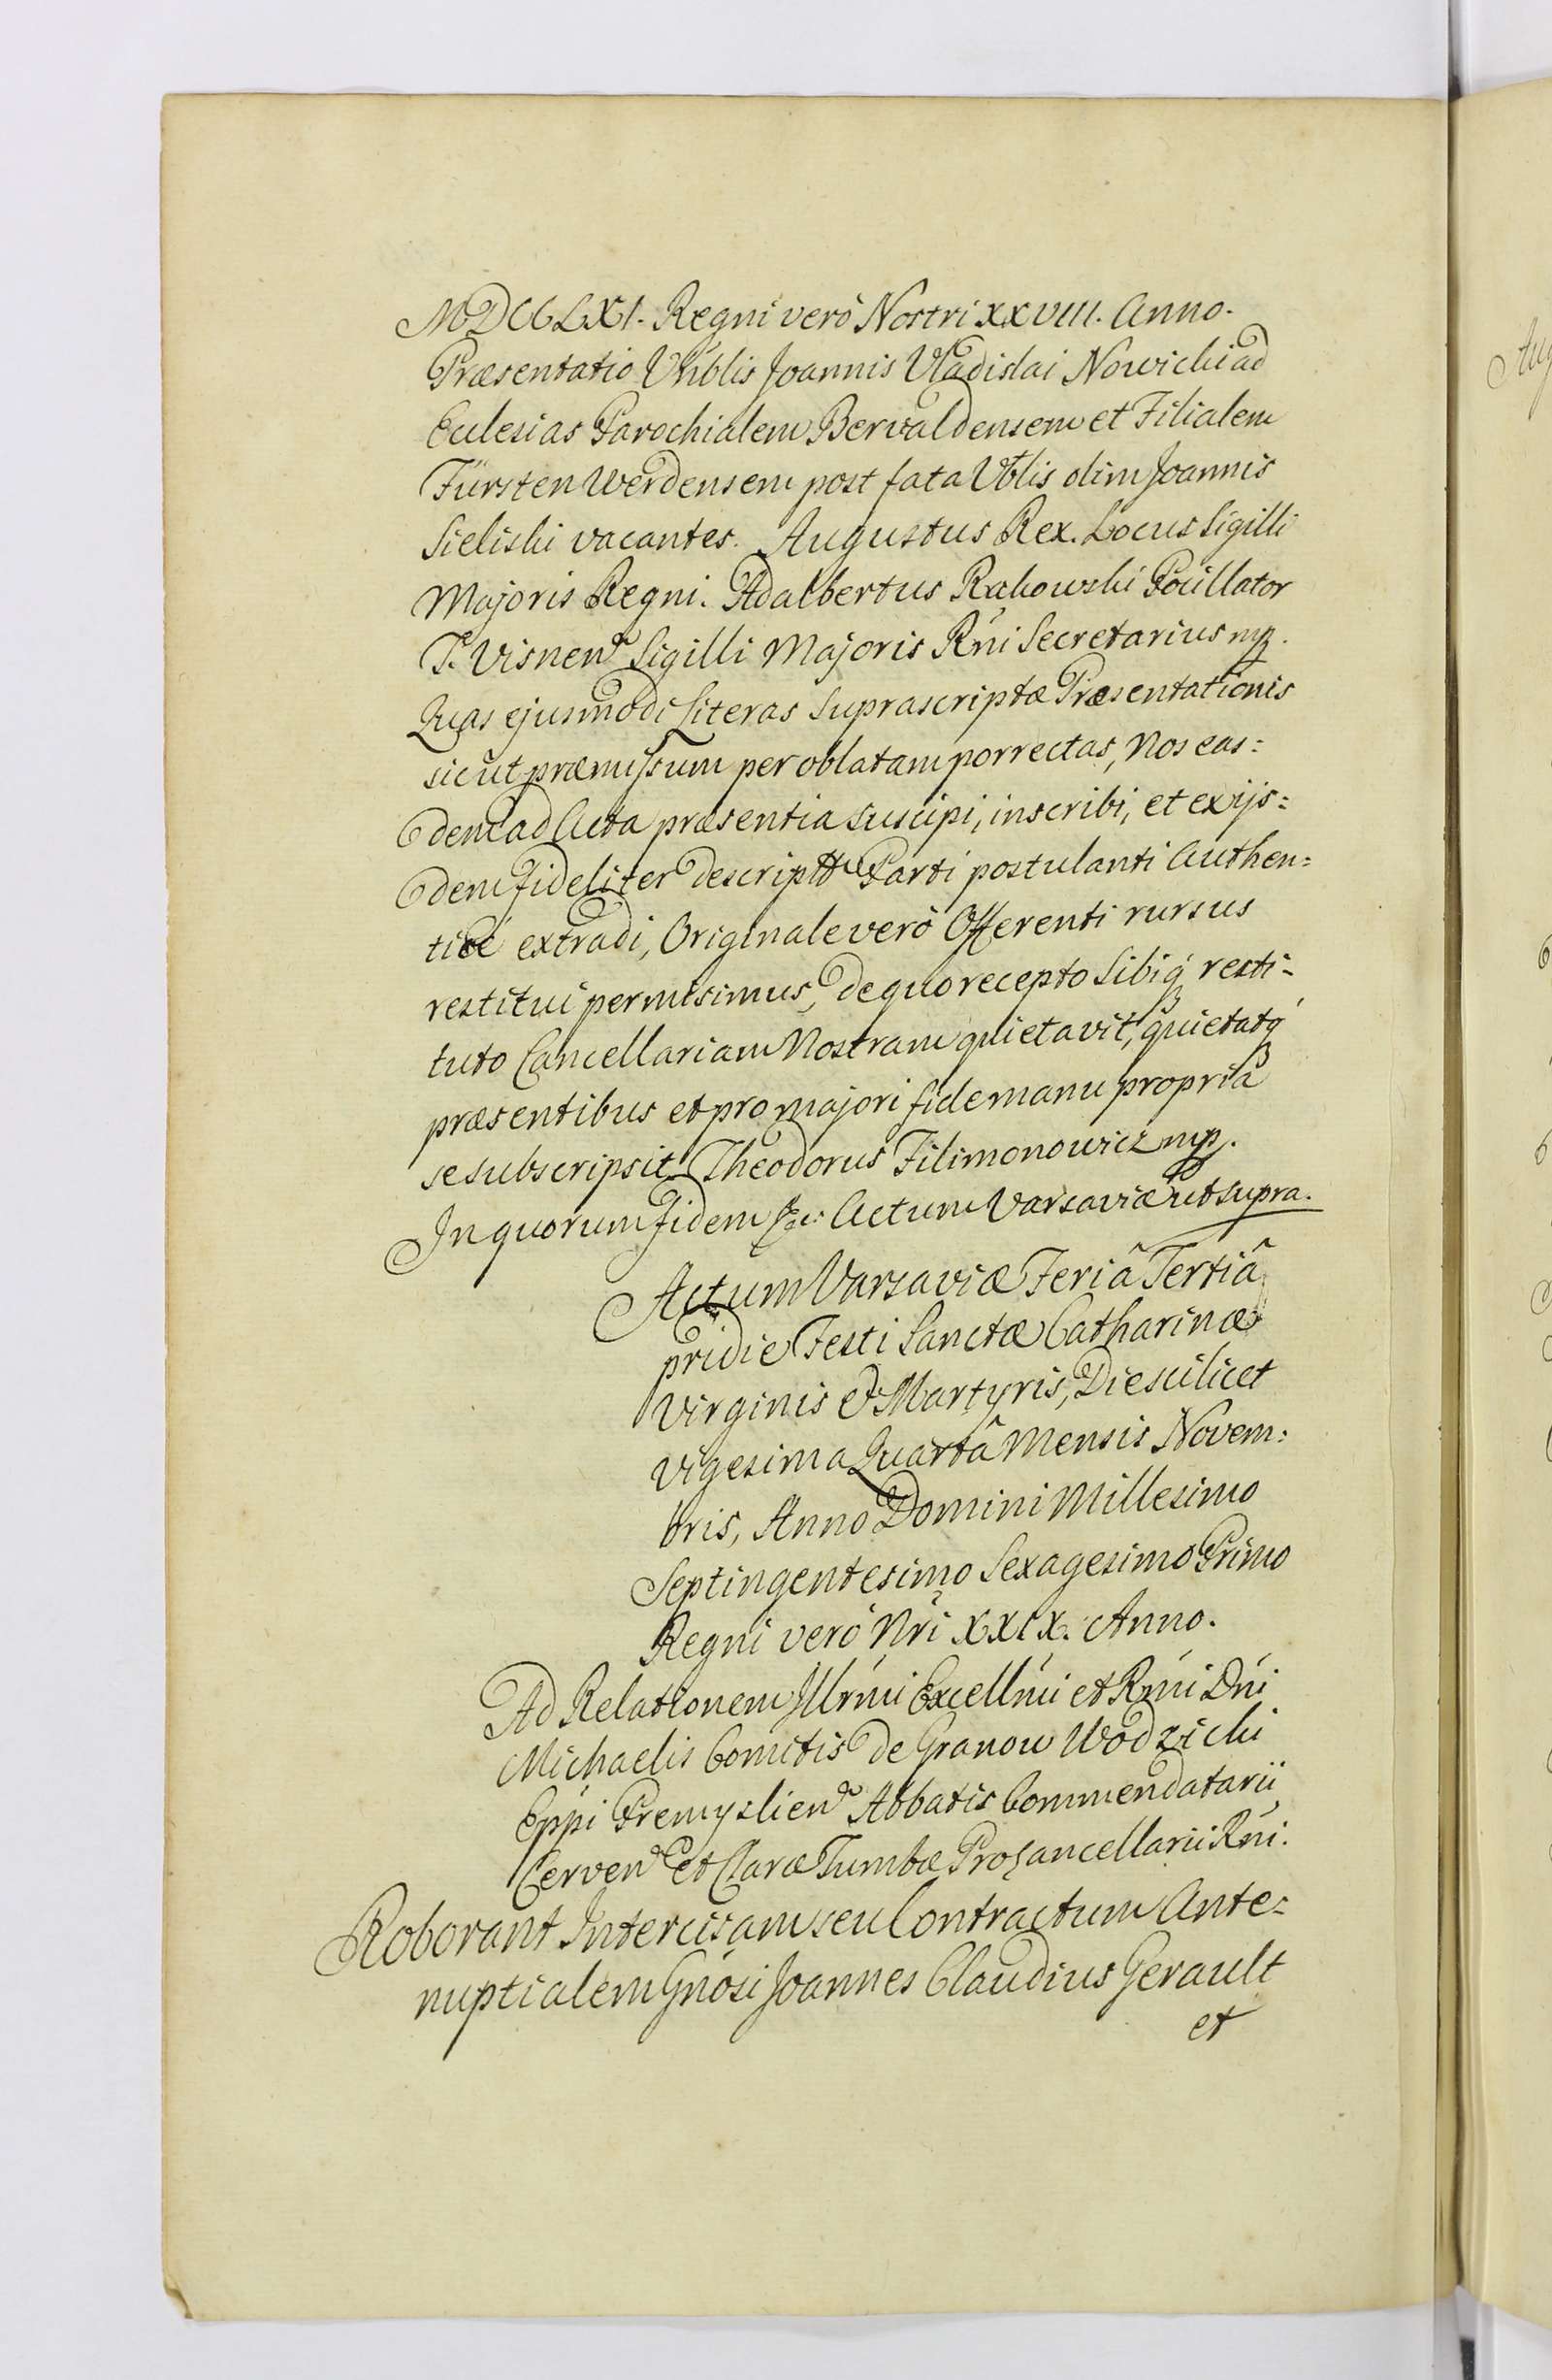 MDCCLXI. Regni verò Nostri XXVIII. Anno.
Præsentatio Vńblis Joannis Vladislai Nowicki ad
Eclesias Parochialem Bervaldensem et Filialem
Fürstenwerdensem post fata Vblis olim Joannis
Sielski vacantes. Augustus Rex. Locus Sigilli
Majoris Regni. Adalbertus Rakowski Pocillator
T. Visnen Sigilli Majoris Rńi Secretarius mp.
Quas ejusmodi Literas suprascriptæ Præsentationis
sicut præmissum per oblatam porrectas, Nos eas:
dem ad Acta præsentia suscipi, inscribi, et ex ijs:
dem fideliter descriptt Parti postulanti Authen:
ticè extradi, Originale verò Offerenti rursus
restitui permisimus, de quo recepto Sibiq́ resti:
tuto Cancellariam Nostram quietavit, quietatq́
præsentibus et pro majori fide manu propriâ
se subscripsit. Theodorus Filimonowicz mp.
In quorum fidem &c: Actum Varsaviæ ut supra.
Actum Varsaviæ Feriâ Tertiâ
pridie Festi Sanctæ Catharinæ
Virginis & Martyris, Die scilicet
Vigesima Quartâ Mensis Novem:
bris, Anno Domini Millesimo
Septingentesimo Sexagesimo Primo
Regni verò Nrí XXIX. Anno.
Ad Relationem Illrḿi Excellḿi et Rḿi Dńi
Michaelis Comitis de Granow Wodzicki
Eppi Premyslien Abbatis Commendatarii
Cerven et Claræ Tumbæ Procancellarii Rńi.
Roborant Intercisam seu Contractum Ante:
nuptialem Gńosi Joannes Claudius Gerault
et
Aug